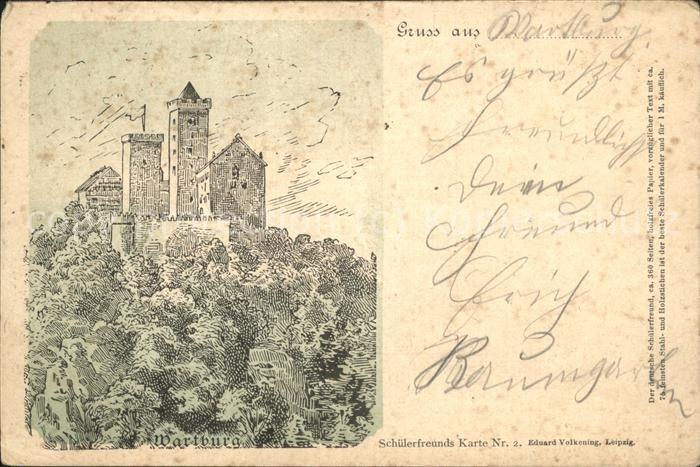 Gruss aus Wartburg.
Es grüßt
freundlich
Dein
Freund
Erich
Baumgarten
Der deutsche Schülerfreund, ca. 360 Seiten, holzfreies Papier, vorzüglicher Text mit ca.
75 feinsten Stahl- und Holzstichen ist der beste Schülerkalender und für 1 M. käuflich.
Wartburg
Schülerfreunds Karte Nr. 2. Eduard Volkening, Leipzig.